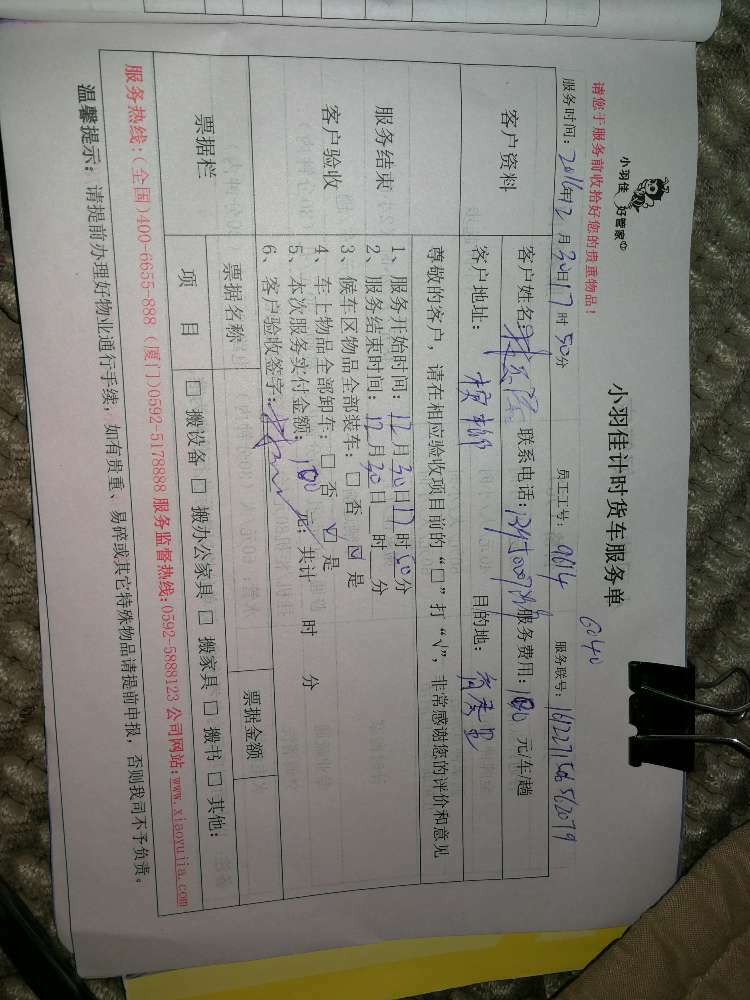 小羽佳 好管家
小羽佳计时货车服务单
6040
请您于服务前收拾好您的贵重物品！
服务时间：2016年12月30日17时50分 员工工号：9614 服务联号：
客户资料
客户姓名： 联系电话： 服务费用：180元/车/趟
客户地址：槟榔 目的地：
尊敬的客户，请在相应验收项目前的“□”打“√”，非常感谢您的评价和意见
服务结束
客户验收
1、服务开始时间：12月30日17时50分
2、服务结束时间：12月30日 时 分
3、候车区物品全部装车：□否 ☑是
4、车上物品全部卸车：□否 ☑是
5、本次服务实付金额：180元；共计 时 分
6、客户验收签字：
票据栏
票据名称 票据金额
项目 □搬设备 □搬办公家具 □搬家具 □搬书 □其他：
服务热线：(全国)400-6655-888 (厦门)0592-5178888 服务监督热线：0592-5888123 公司网站：www.xiaoyujia.com
温馨提示：请提前办理好物业通行手续，如有贵重、易碎或其它特殊物品请提前申报，否则我司不予负责。